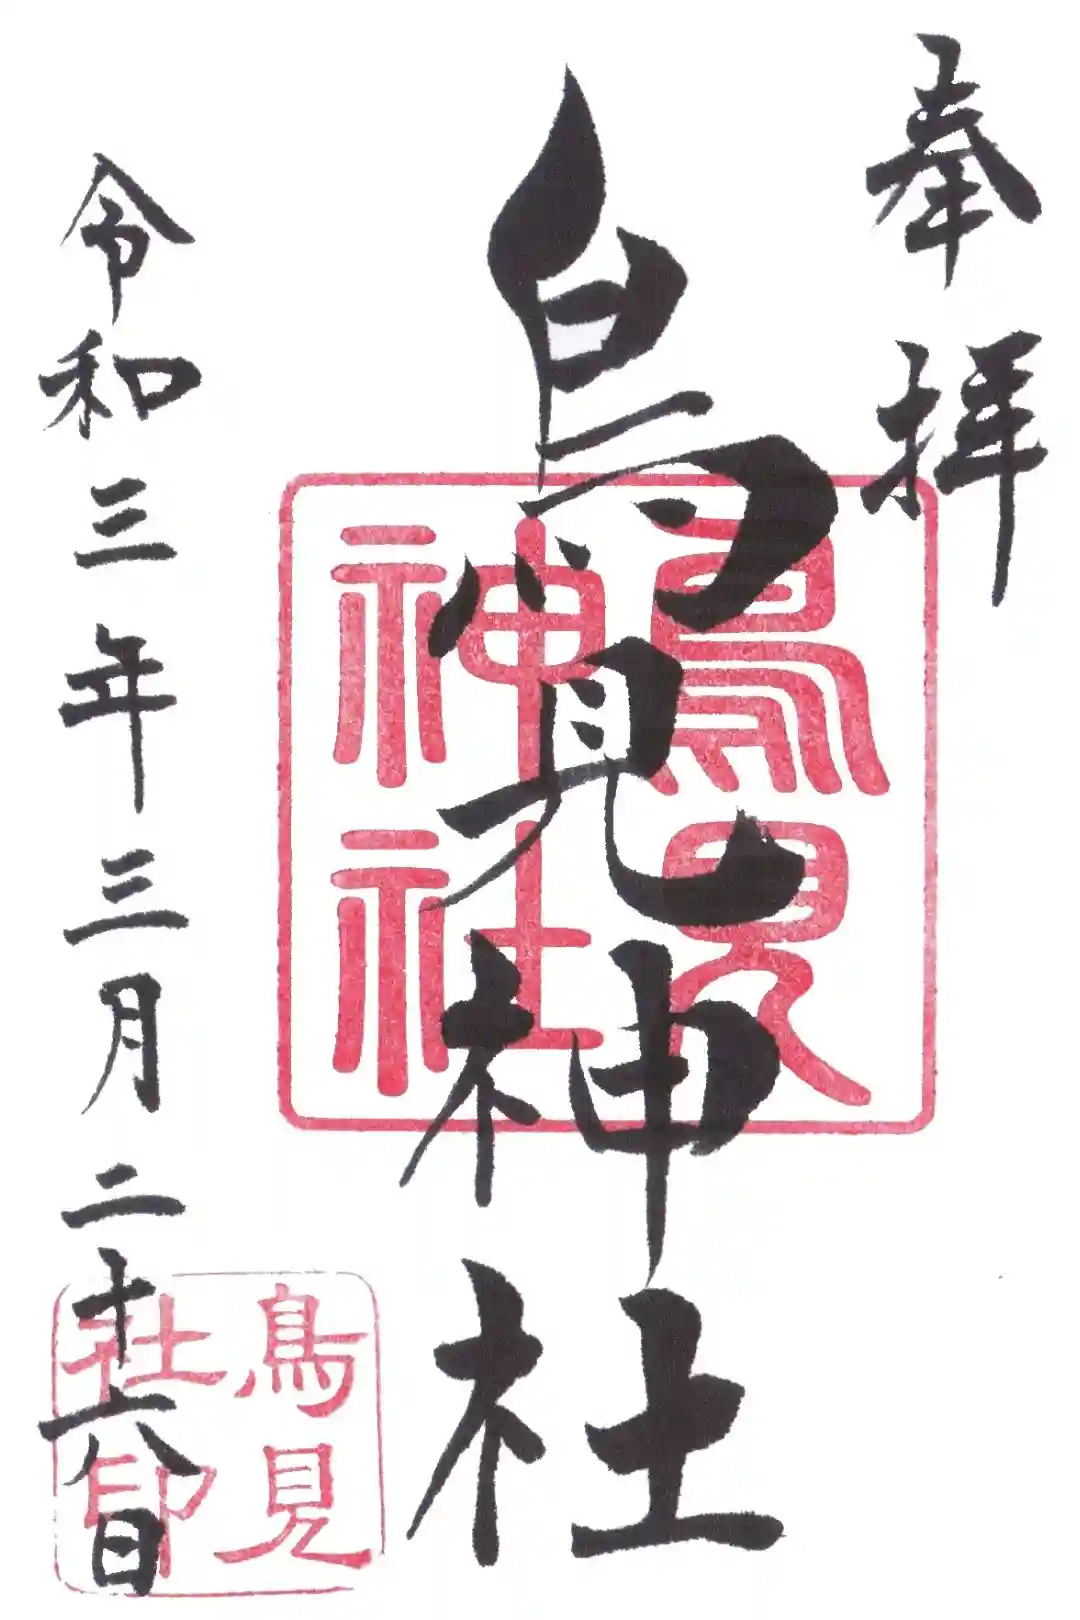 奉拝
鳥見神社
鳥見神社
令和三年三月二十六日
鳥見社印